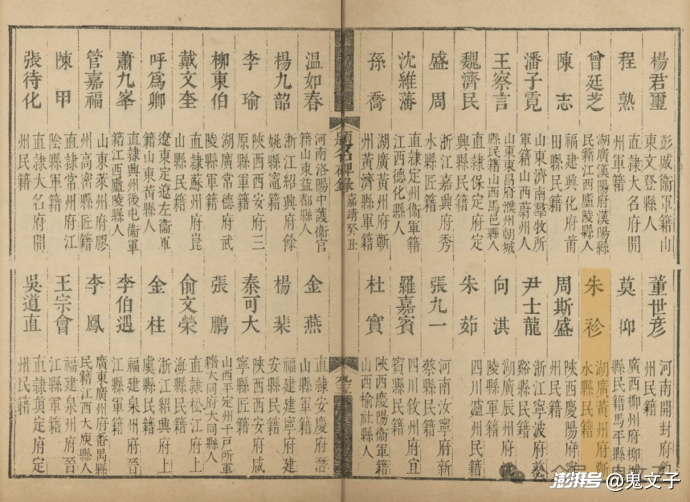 楊君璽
彭城衛軍籍山
東文登縣人
程熟
直隸大名府開
州民籍
曾廷芝
湖廣漢陽府漢陽縣
民籍江西廬陵縣人
陳志
福建興化府莆
田縣民籍
潘子霓
山東濟南羣牧所
軍籍山西蔚州人
王察言
山東東昌府濮州朝城
縣民籍山西馬邑縣人
魏濟民
直隸保定府定
興縣民籍
盛周
浙江嘉興府秀
水縣匠籍
沈維藩
直隸定州衛軍籍
江西德化縣人
孫喬
湖廣黃州府蘄
州黃濟縣軍籍
董世彥
河南開封府
州民籍
莫仰
廣西柳州府柳城
縣民籍馬平縣人
朱袗
湖廣黃州府蘄
水縣民籍
周斯盛
陝西慶陽府寧
尹士龍
浙江寧波府慈
谿縣民籍
向淇
湖廣辰州府沅
陵縣軍籍
朱茹
四川瀘州民籍
張九一
河南汝寧府新
蔡縣民籍
羅嘉賓
四川敘州府宜
賓縣民籍
杜實
陝西慶陽衛軍籍
山西榆社縣人
題名碑錄
嘉靖癸丑
溫如春
河南洛陽中護衛官
籍山東益都縣人
楊九韶
浙江紹興府餘
姚縣竈籍
李瑜
陝西西安府三
原縣軍籍
柳東伯
湖廣常德府武
陵縣軍籍
戴文奎
直隸蘇州府崑
山縣民籍
呼爲卿
遼東定遼左衛軍
籍山東黃縣人
蕭九峯
直隸興州後屯衛軍
籍江西廬陵縣人
管嘉福
山東萊州府膠
州高密縣匠籍
陳甲
直隸常州府江
陰縣軍籍
張待化
直隸大名府開
州民籍
金燕
直隸安慶府潛
山縣軍籍
楊棐
福建建寧府建
安縣民籍
秦可大
陝西西安府咸
寧縣匠籍
張鵬
山西平定州千戶所軍
籍大同府大同縣人
俞文榮
直隸松江府上
海縣民籍
金柱
浙江紹興府上
虞縣民籍
李伯遇
福建泉州府晉
江縣軍籍
李鳳
廣東廣州府番禺縣
民籍江西大庾縣人
王宗會
福建泉州府晉
江縣軍籍
吳道直
直隸真定府定
州民籍
澎湃号@鬼文子